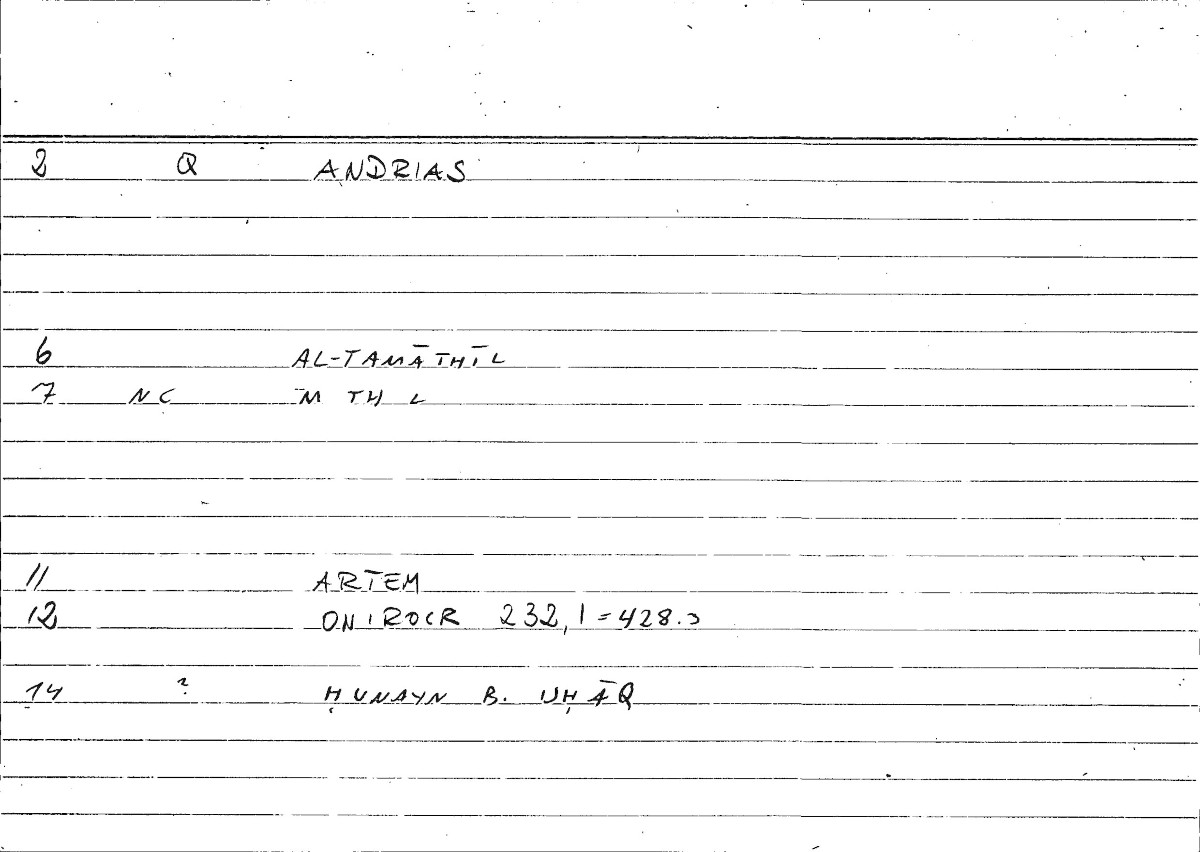 2 Q ANDRIAS
6 AL-TAMĀTHĪL
7 NC M TH L
11 ARTEM
12 ONIROCR 232,1=428.3
14 ? ḤUNAYN B. ISḤĀQ